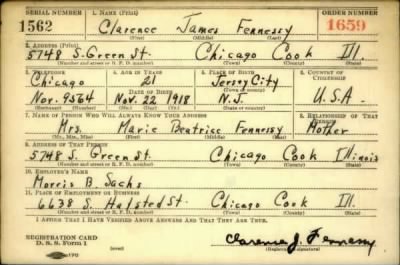 SERIAL NUMBER 1. NAME (Print) ORDER NUMBER
1562 Clarence James Fennessy 1659
(First) (Middle) (Last)
2. ADDRESS (Print)
5748 S. Green St. Chicago Cook Ill.
(Number and street or R. F. D. number) (Town) (County) (State)
3. TELEPHONE 4. AGE IN YEARS 5. PLACE OF BIRTH 6. COUNTRY OF CITIZENSHIP
Chicago 21 Jersey City
DATE OF BIRTH (Town or county)
Nor. 9564 Nov. 22, 1918 N.J. U.S.A.
(State or country)
7. NAME OF PERSON WHO WILL ALWAYS KNOW YOUR ADDRESS 8. RELATIONSHIP OF THAT PERSON
Mrs. Marie Beatrice Fennessy Mother
(Mr., Mrs., Miss) (First) (Middle) (Last)
9. ADDRESS OF THAT PERSON
5748 S. Green St. Chicago Cook Illinois
(Number and street or R. F. D. number) (Town) (County) (State)
10. EMPLOYER'S NAME
Morris B. Sachs
11. PLACE OF EMPLOYMENT OR BUSINESS
6638 S. Halsted St. Chicago Cook Ill.
(Number and street or R. F. D. number) (Town) (County) (State)
I AFFIRM THAT I HAVE VERIFIED ABOVE ANSWERS AND THAT THEY ARE TRUE.
REGISTRATION CARD
D. S. S. Form 1 (over) Clarence J. Fennessy
(Registrant's signature)